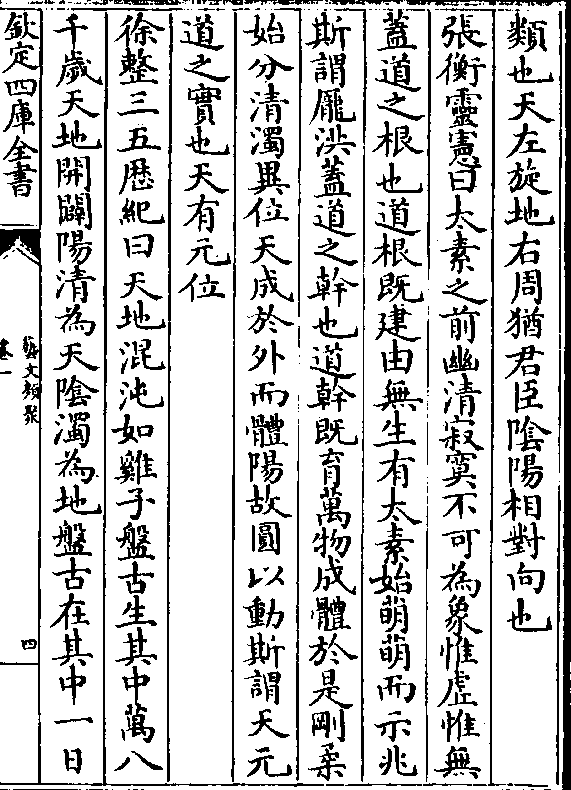 類也天左旋地右周猶君臣陰陽相對向也
張衡靈憲曰太素之前幽清寂寞不可為象惟虛惟無
蓋道之根也道根既建由無生有太素始萌萌而示兆
斯謂厖洪蓋道之幹也道幹既育萬物成體於是剛柔
始分清濁異位天成於外而體陽故圓以動斯謂天元
道之實也天有元位
徐整三五厯紀曰天地混沌如雞子盤古生其中萬八
千歲天地開闢陽清為天陰濁為地盤古在其中一日
欽定四庫全書
藝文類聚
卷一
四